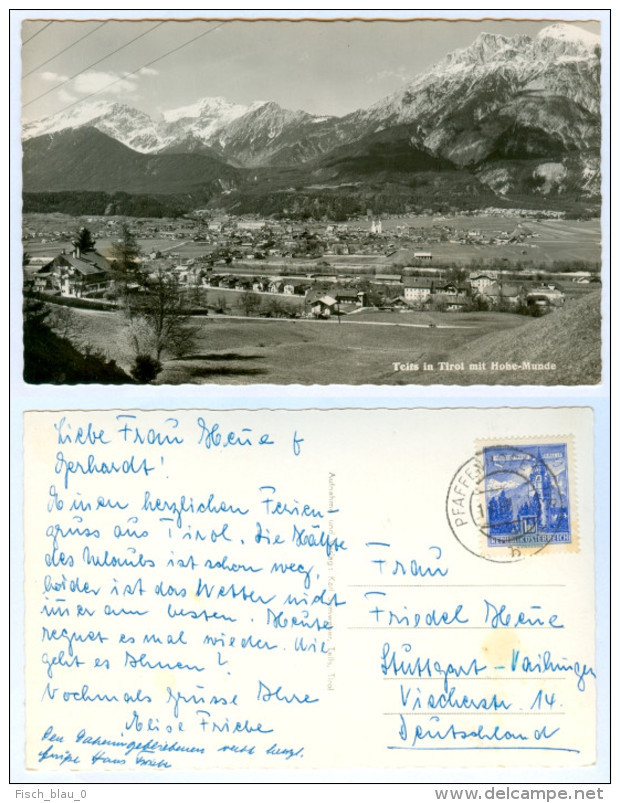 Telfs in Tirol mit Hohe-Munde
Liebe Frau Heue &
Gerhardt!
Einen herzlichen Ferien-
gruss aus Tirol. Die Hälfte
des Urlaubs ist schon weg,
leider ist das Wetter nicht
immer am besten. Heute
regnet es mal wieder. Wie
geht es Ihnen?
Nochmals Grüsse Ihre
Elise Friebe
Den Daheimgebliebenen recht herzl.
Grüße Hans
PFAFFEN
REPUBLIK ÖSTERREICH
Frau
Friedel Heue
Stuttgart-Vaihingen
Vischerstr. 14.
Deutschland
Telfs, Tirol
Fisch_blau_0
www.delcampe.net